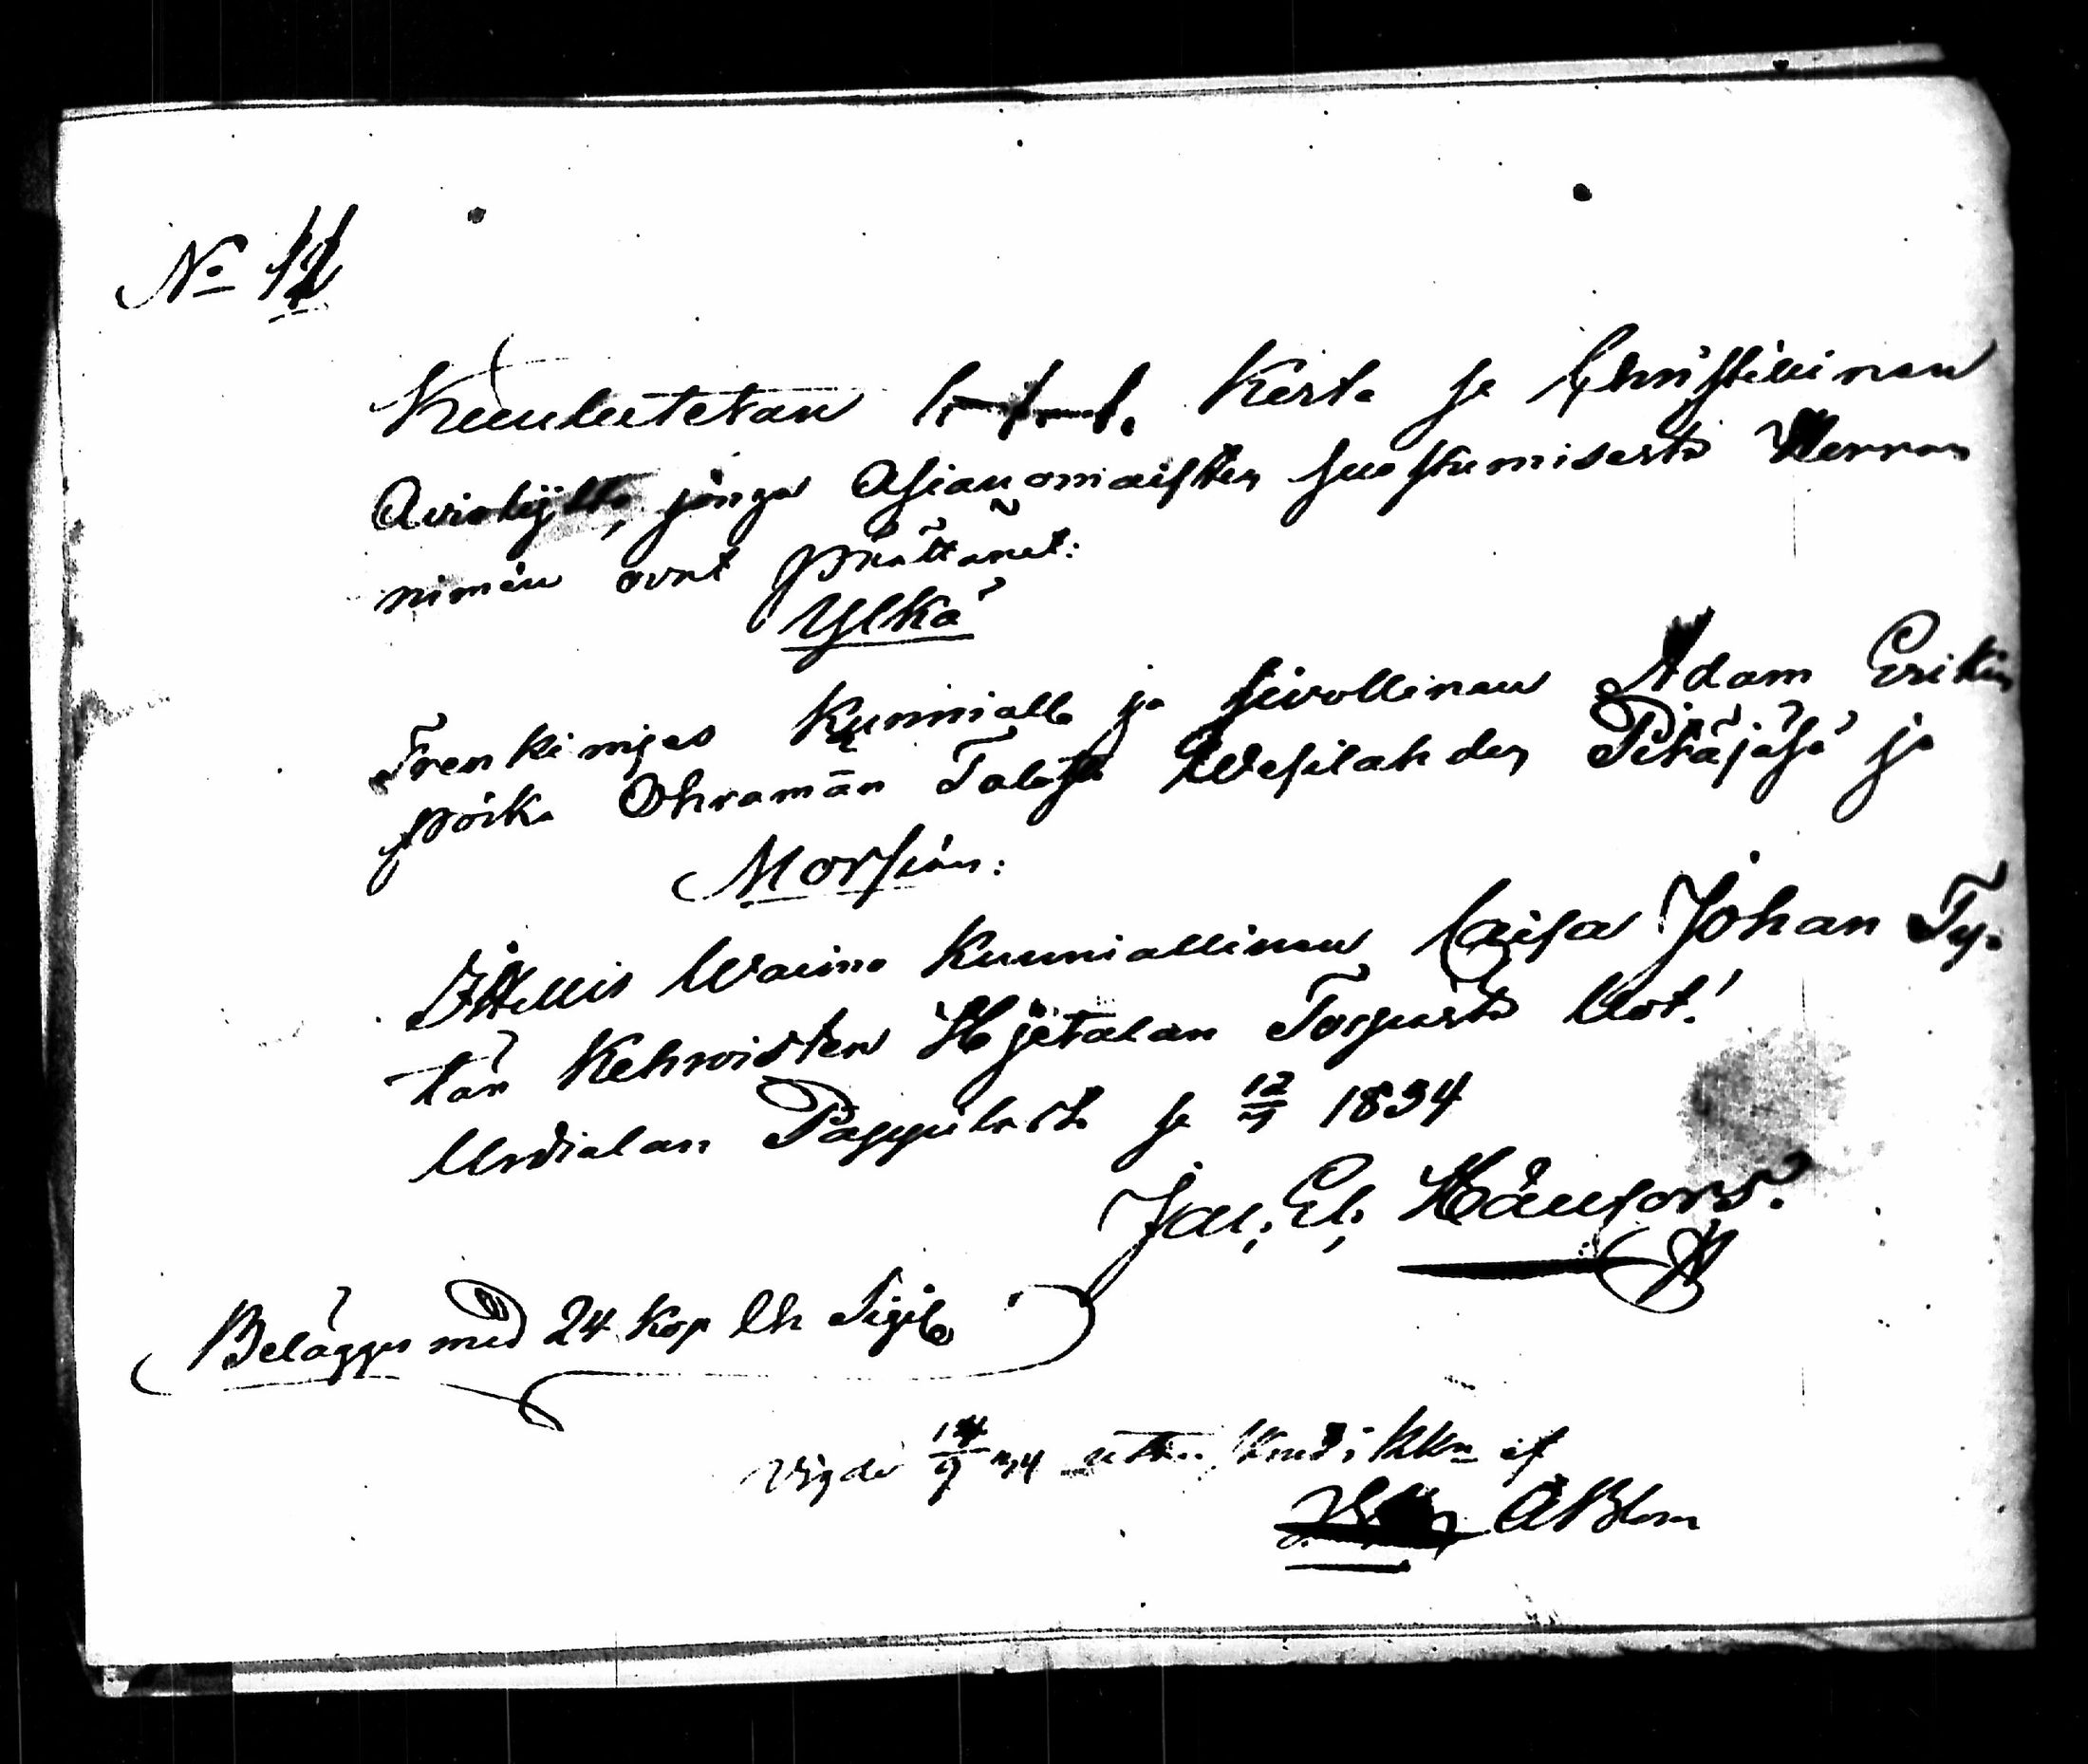 No 12
Kuulutetan 1. 2. 3. Kerta se Christillinen
Avioliitto, jonga Asianomaisten suostumisesta Herran
nimën ovat päättänet:
Ylkä
Trenkimjes Kunnialla ja siivollinen Adam Erikin
poika Ohramän Talosta Wesilahden Pitäjäsä ja
Morsian:
Itellis Waimo Kunniallinen Caisa Johan Ty-
tär Kehvoisten Hjetalan Torpasta Uot!
Urdialan Pappilasta se 12/9 1834
Jac: El: Häufors.
Belägges med 24 kop Ch Sigil
Vigde 14/9 34 uti Kmdi Kkn af
ABlom